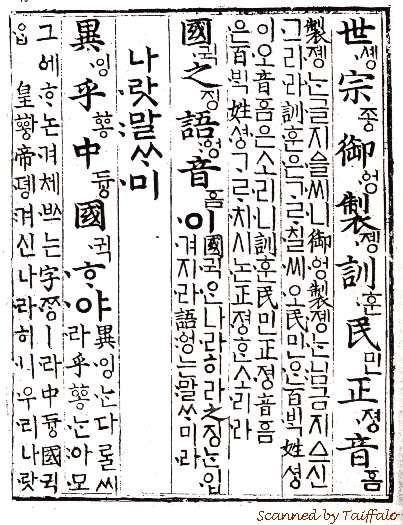 世솅宗조ᇰ御ᅌᅥᆼ製졩訓훈民민正져ᇰ音ᅙᅳᆷ
製졩는글지ᅀᅳᆯ씨니御ᅌᅥᆼ製졩는님금지ᅀᅳ샨
그리라訓훈은ᄀᆞᄅᆞ칠씨오民민은百ᄇᆡᆨ姓셔ᇰ
이오音ᅙᅳᆷ은소리니訓훈民민正져ᇰ音ᅙᅳᆷ
은百ᄇᆡᆨ姓셔ᇰᄀᆞᄅᆞ치시논正져ᇰᄒᆞᆫ소리라
國귁之징語ᅌᅥᆼ音ᅙᅳᆷ이
國귁ᄋᆞᆫ나라히라之징ᄂᆞᆫ입
겨지라語ᅌᅥᆼ는말ᄊᆞ미라
나랏말ᄊᆞ미
異잉乎ᅘᅩᆼ中듀ᇰ國귁ᄒᆞ야
異잉ᄂᆞᆫ다ᄅᆞᆯ씨
라乎ᅘᅩᆼᄂᆞᆫ아모
그ᅌᅦᄒᆞ논겨체ᄡᅳ는字ᄍᆞᆼㅣ라中듀ᇰ國귁
ᄋᆞᆫ皇ᅘᅪᇰ帝뎽겨신나라히니우리나랏
Scanned by Taiffalo